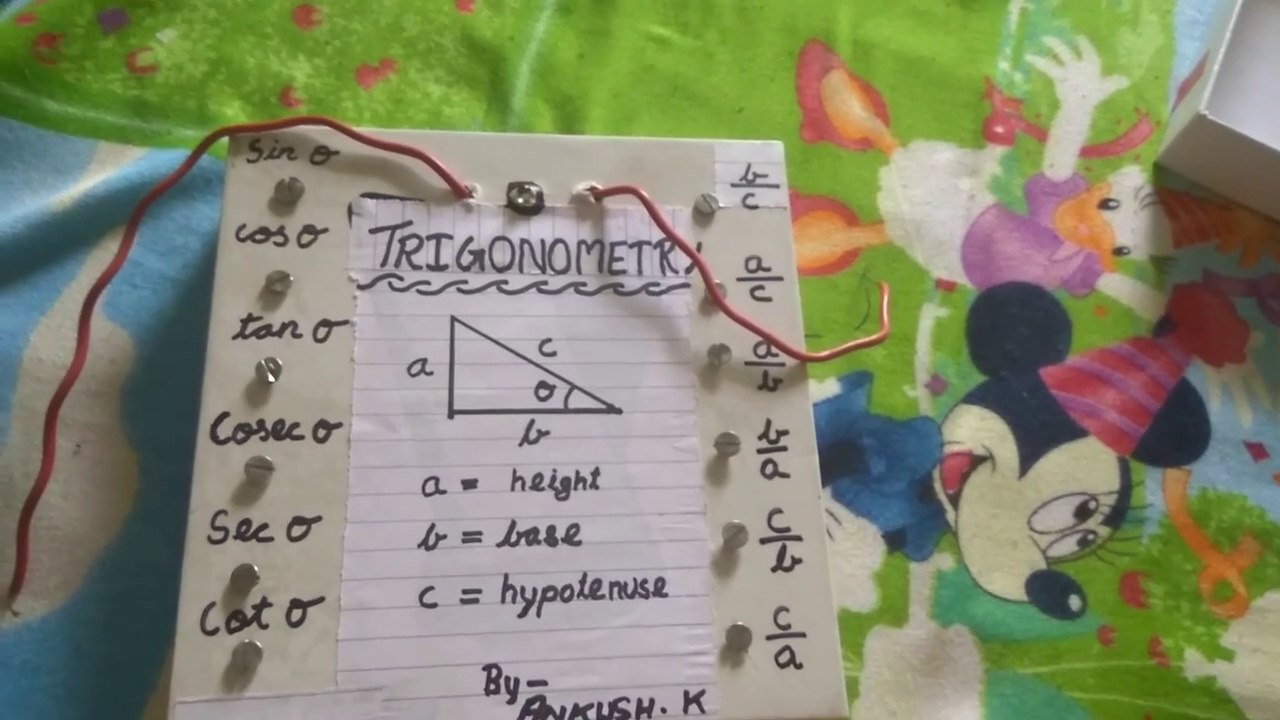 sin σ
cos σ
tan σ
Cosec σ
Sec σ
Cot σ
TRIGONOMETRY
a
c
θ
b
a = height
b = base
c = hypotenuse
By-
ANKUSH. K
b/c
a/c
a/b
b/a
c/b
c/a